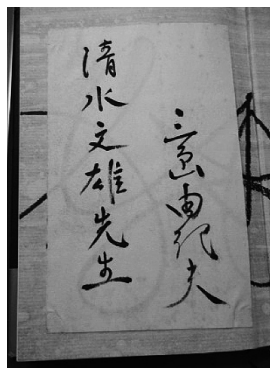 三島由紀夫
清水文雄先生